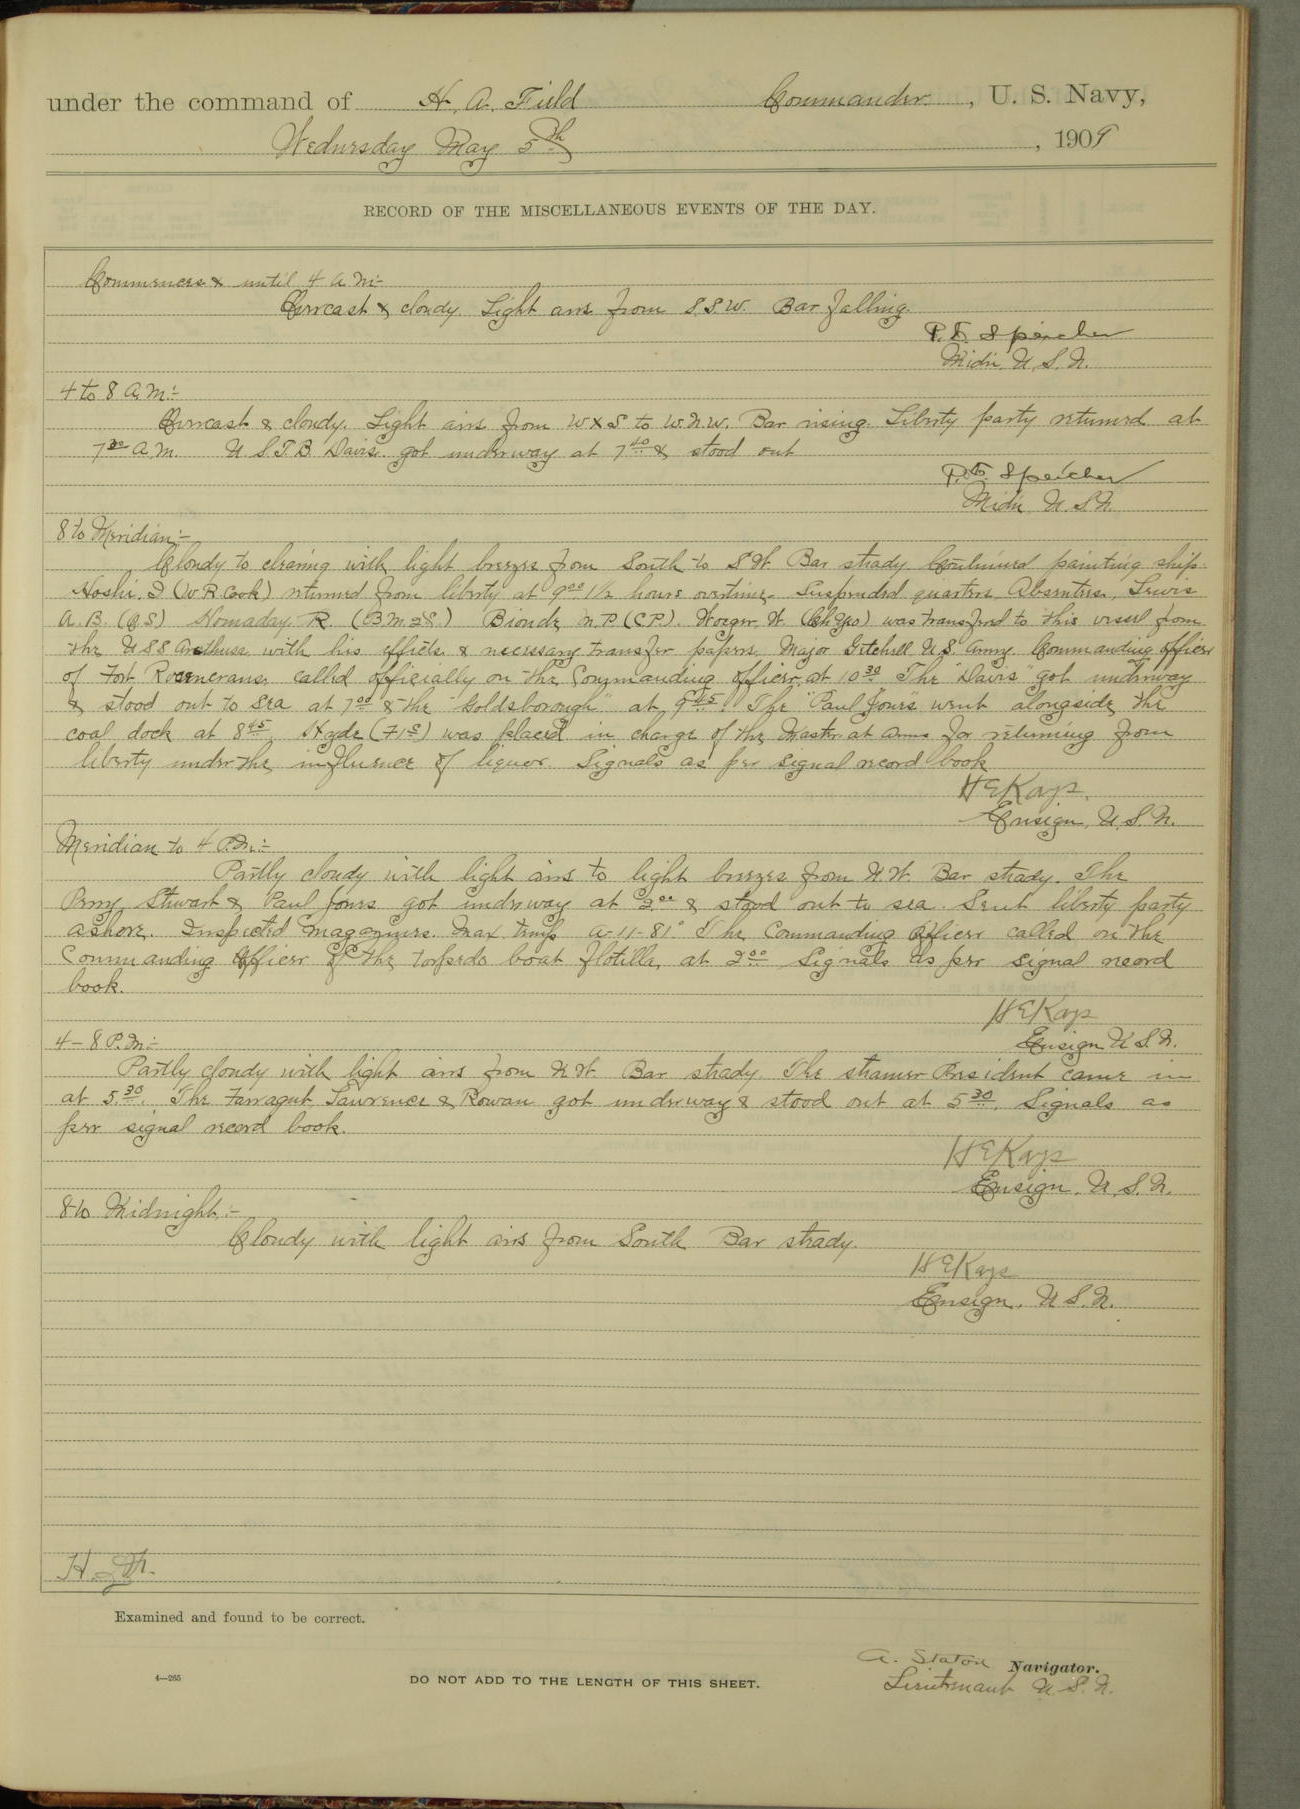 under the command of H. A. Field Commander, U. S. Navy,
Wednesday May 5th, 1909
RECORD OF THE MISCELLANEOUS EVENTS OF THE DAY.
Commences & until 4 A.M:-
Overcast & cloudy. Light airs from S.S.W. Bar falling.
P. E. Speicher
Midn. U.S.N.
4 to 8 A.M:-
Overcast & cloudy. Light airs from WxS to W.N.W. Bar rising. Liberty party returned at
7 30 A.M. U S.T.B. Davis got underway at 7 40 & stood out
P. E. Speicher
Midn U.S.N.
8 to Meridian:-
Cloudy to clearing with light breezes from South to S W. Bar steady Continued painting ship.
Hoshi, I (W R Cook) returned from liberty at 9 00 1 1/2 hours overtime. Suspended quarters, Absentees, Lewis
A.B. (Q.S.) Homaday R (B.M. 2d C.) Bionde N.P (C.P). Woeger, W. (Ch Yeo) was transferred to this vessel from
the U S S Arethusa with his effects & necessary transfer papers. Major Getchell U.S. Army Commanding officer
of Fort Rosencrans called officially on the Commanding officer at 10 30 The "Davis" got underway
& stood out to sea at 7 00 & the "Goldsborough" at 9 45. The "Paul Jones" went alongside the
coal dock at 8 45. Hyde (F1c) was placed in charge of the Master at arms for returning from
liberty under the influence of liquor. Signals as per signal record book
H E Kays.
Ensign, U.S.N.
Meridian to 4 P.M:-
Partly cloudy with light airs to light breezes from N.W. Bar steady. The
Perry, Stewart & Paul Jones got underway at 2 00 & stood out to sea. Sent liberty party
ashore. Inspected magazines. Max. temp A-11-81° The Commanding Officer called on the
Commanding Officer of the torpedo boat flotilla, at 2 00 Signals as per signal record
book.
H E Kays
Ensign U S.N.
4-8 P.M:-
Partly cloudy with light airs from N W. Bar steady. The steamer President came in
at 5.30. The Farragut, Lawrence & Rowan got underway & stood out at 5 30. Signals as
per signal record book.
H E Kays
Ensign. U.S.N.
8 to Midnight:-
Cloudy with light airs from South Bar steady.
H E Kays
Ensign. U.S.N.
Examined and found to be correct.
A. Staton Navigator.
Lieutenant U.S.N.
4—265
DO NOT ADD TO THE LENGTH OF THIS SHEET.